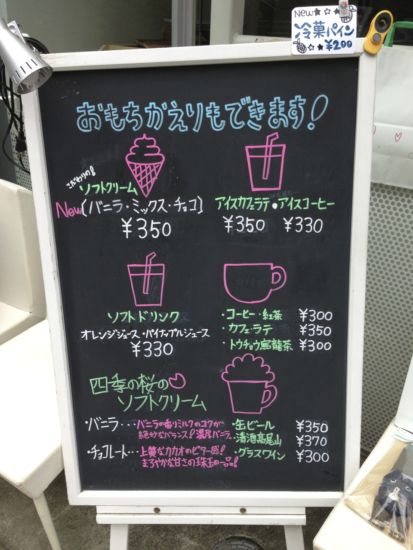 New☆
冷菓パイン
☆☆☆ ¥200
おもちかえりもできます!
こだわりの!
ソフトクリーム
New(バニラ・ミックス・チョコ)
¥350
アイスカフェラテ・アイスコーヒー
¥350 ¥330
ソフトドリンク
オレンジジュース・パイナップルジュース
¥330
・コーヒー・紅茶 ¥300
・カフェ・ラテ ¥350
・トウチョウ烏龍茶 ¥300
四季の桜の
ソフトクリーム
・バニラ・・・バニラの香りミルクのコクが
絶妙なバランス!濃厚バニラ。
・チョコレート・・・上質なカカオのビター感!
まろやかな甘さの珠玉の一品!
・缶ビール ¥350
・清酒高尾山 ¥370
・グラスワイン ¥300